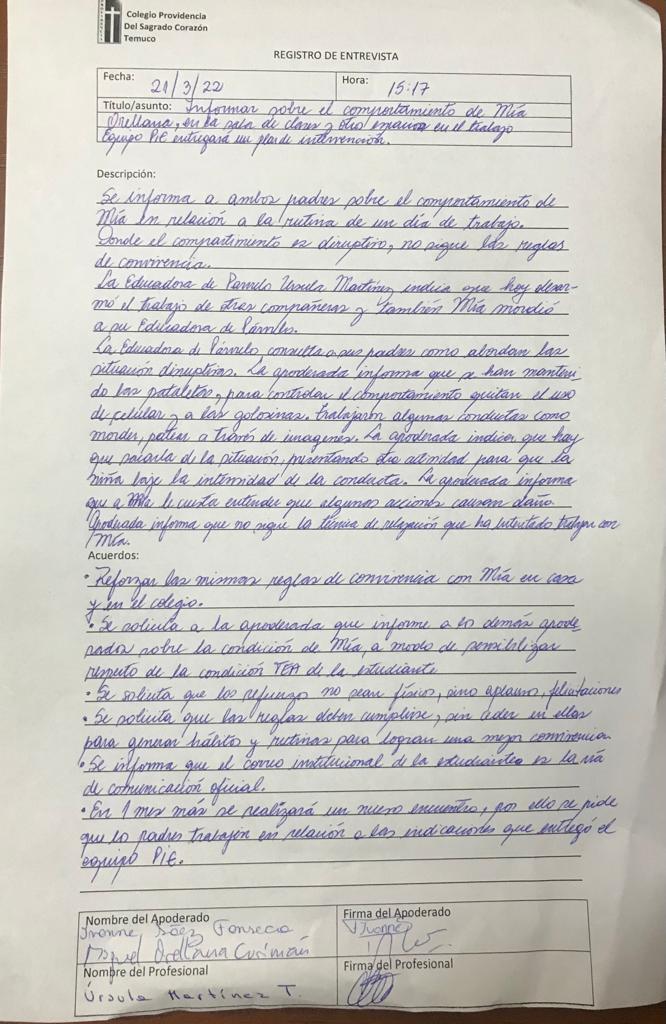 Colegio Providencia
Del Sagrado Corazón
Temuco
REGISTRO DE ENTREVISTA
Fecha: 21/3/22 Hora: 15:17
Título/asunto: Informar sobre el comportamiento de Mía
Orellana, en la sala de clases y otro espacio en el trabajo
Equipo PIE entregará un plan de intervención.
Descripción:
Se informa a ambos padres sobre el comportamiento de
Mía en relación a la rutina de un día de trabajo.
Donde el comportamiento es disruptivo, no sigue las reglas
de convivencia.
La Educadora de Párvulo Ursula Martínez indica que hoy desar-
mó el trabajo de otras compañeras y también Mía mordió
a su Educadora de Párvulo.
La Educadora de Párvulo, consulta a sus padres como abordan las
situación disruptiva. La apoderada informa que se han manteni-
do las pataletas, para controlar el comportamiento quitan el uso
de celular y a las golosinas. trabajaron algunas conductas como
morder, patear a través de imagenes. La apoderada indica que hay
que sacarla de la situación, presentando otra actividad para que la
niña baje la intensidad de la conducta. La apoderada informa
que a Mía le cuesta entender que algunas acciones causan daño.
Apoderada informa que no sigue la técnica de relajación que ha intentado trabajar con
Mía.
Acuerdos:
• Reforzar las mismas reglas de convivencia con Mía en casa
y en el colegio.
• Se solicita a la apoderada que informe a los demás apode-
rados sobre la condición de Mía, a modo de sensibilizar
respecto de la condición TEA de la estudiante
• Se solicita que los refuerzo no sean físicos, sino aplausos, felicitaciones
• Se solicita que las reglas deben cumplirse, sin ceder en ellas
para generar hábitos y rutinas para lograr una mejor convivencia.
• Se informa que el correo institucional de la estudiante es la vía
de comunicación oficial.
• En 1 mes más se realizará un nuevo encuentro, por ello se pide
que lo padres trabajen en relación a las indicaciones que entregó el
equipo PIE.
Nombre del Apoderado Firma del Apoderado
Ivonne Sáez Fonseca Ivonne
Miguel Orellana Curimán
Nombre del Profesional Firma del Profesional
Úrsula Martínez T.